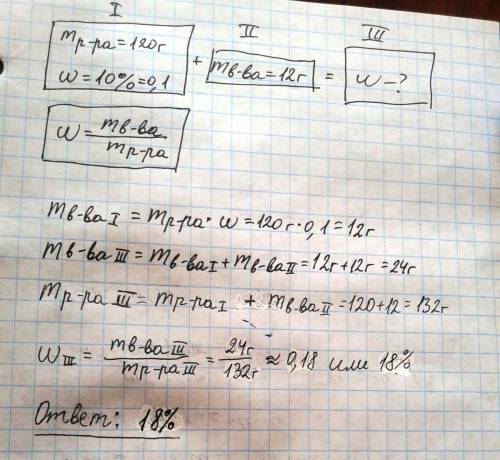 I II III
mр-ра=120г + mв-ва=12г = ω-?
ω=10%=0,1
ω= mв-ва / mр-ра
mв-ва I = mр-ра·ω=120г·0,1=12г
mв-ва III = mв-ва I + mв-ва II =12г+12г=24г
mр-ра III = mр-ра I + mв-ва II =120+12=132г
ω III = mв-ва III / mр-ра III = 24г / 132г ≈ 0,18 или 18%
Ответ: 18%